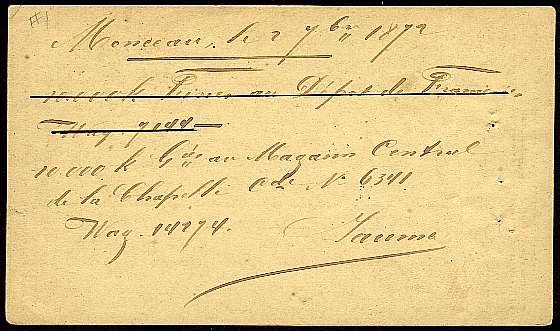 #1
Monceau, le 2 7bre 1872
10.000 k Fines au Dépot de
Wag 7044
10.000 k Gde au Magasin Central
de la Chapelle Ode N° 6341
Wag. 14274.
Jaume